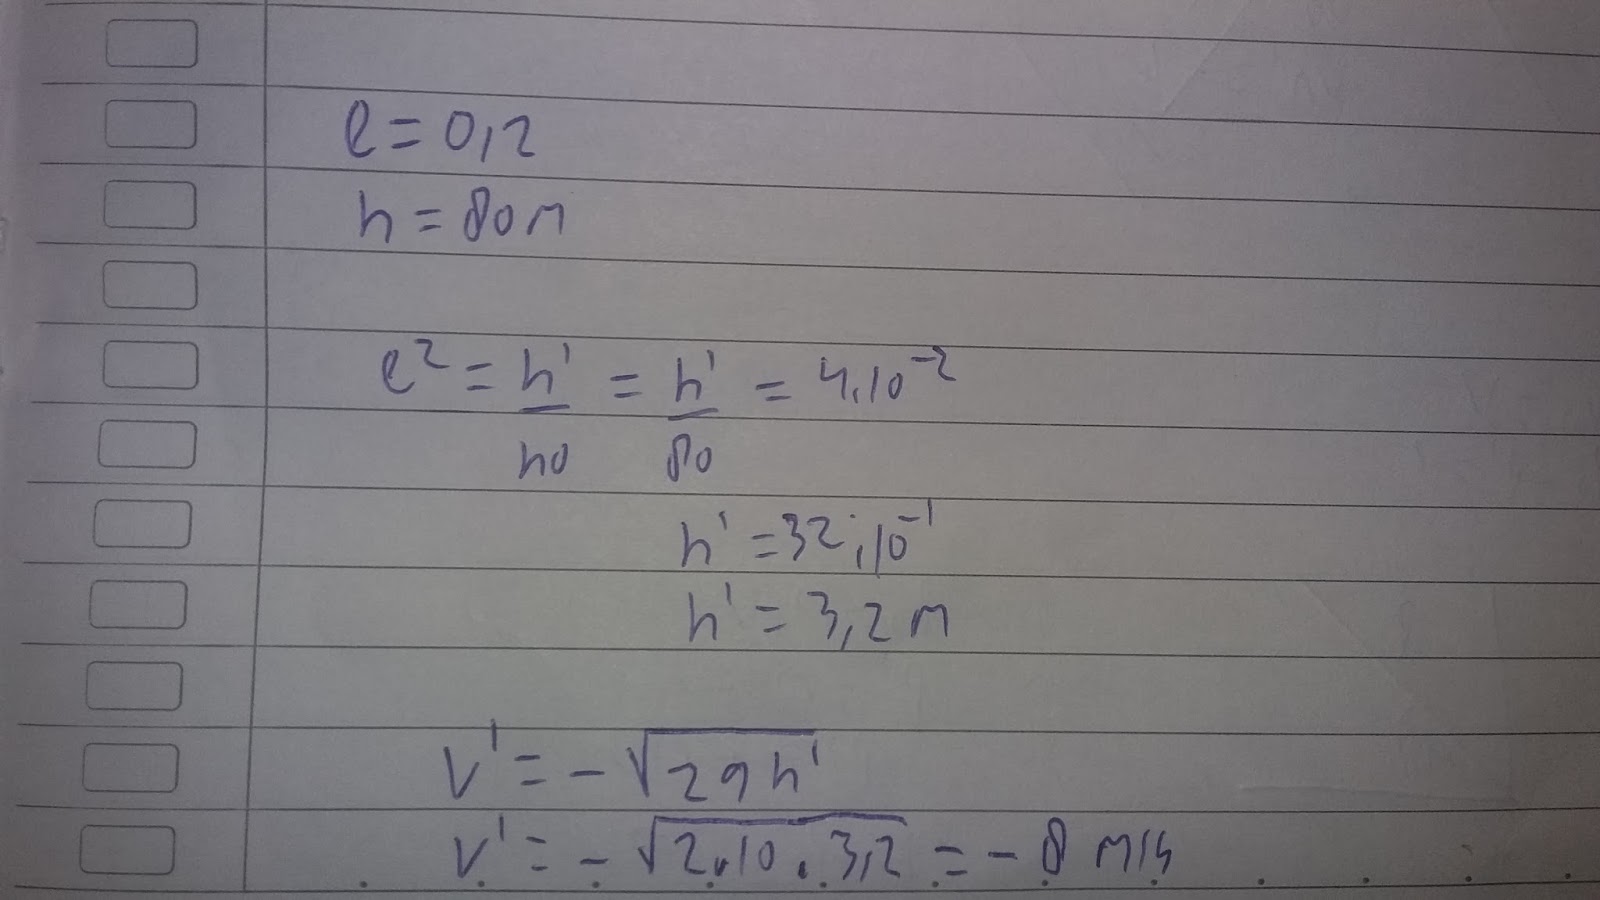 e = 0,2
h = 80 m
e² = h'/h0 = h'/80 = 4.10⁻²
h' = 32.10⁻¹
h' = 3,2 m
v' = -√2gh'
v' = -√2.10.3,2 = -8 m/s